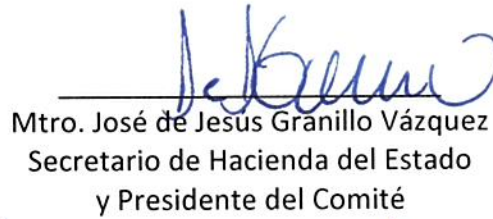 Mtro. José de Jesús Granillo Vázquez
Secretario de Hacienda del Estado
y Presidente del Comité